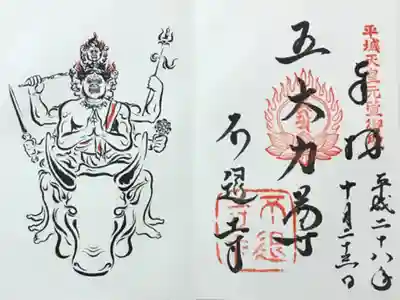 平城天皇元萱御
奉拝
平成二十八年
十月二十三日
五大力
不退寺
不退